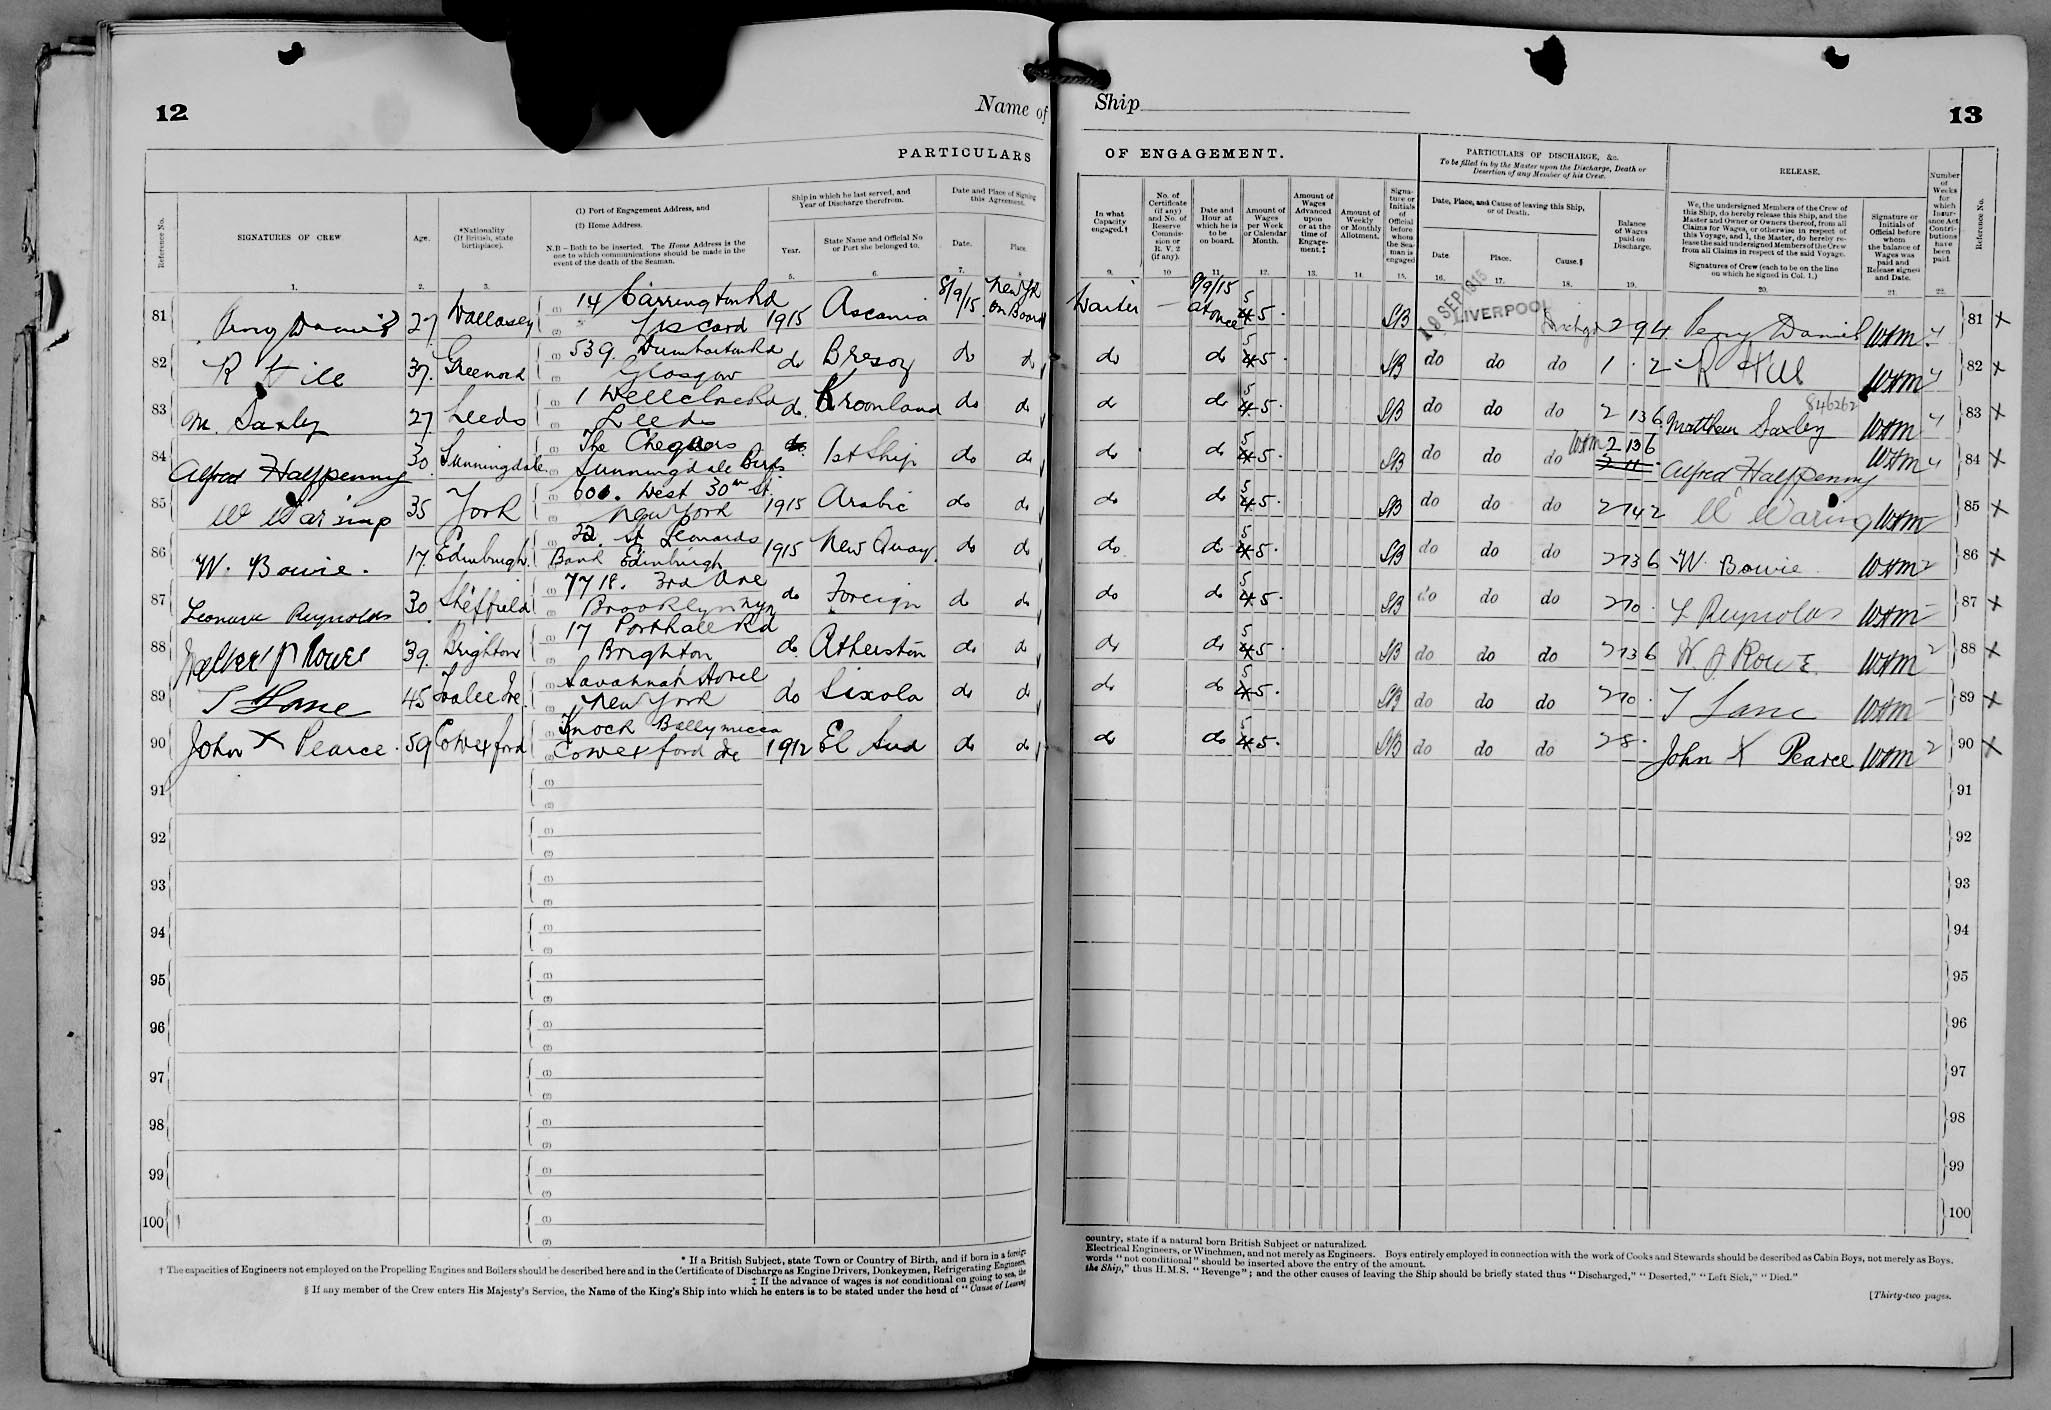 12
Name of
Ship
13
PARTICULARS
OF ENGAGEMENT.
PARTICULARS OF DISCHARGE, &c.
To be filled in by the Master upon the Discharge, Death or
Desertion of any Member of his Crew.
RELEASE.
Reference No.
SIGNATURES OF CREW
Age.
*Nationality
(If British, state
birthplace).
(1) Port of Engagement Address, and
(2) Home Address.
N.B — Both to be inserted. The Home Address is the
one to which communications should be made in the
event of the death of the Seaman.
Ship in which he last served, and
Year of Discharge therefrom.
Year.
State Name and Official No
or Port she belonged to.
Date and Place of Signing
this Agreement.
Date.
Place
In what
Capacity
engaged.†
No. of
Certificate
(if any)
and No. of
Reserve
Commis-
sion or
R. V. 2
(if any).
Date and
Hour at
which he is
to be
on board.
Amount of
Wages
per Week
or Calendar
Month.
Amount of
Wages
Advanced
upon
or at the
time of
Engage-
ment.‡
Amount of
Weekly
or Monthly
Allotment.
Signa-
ture or
Initials
of
Official
before
whom
the Sea-
man is
engaged
Date, Place, and Cause of leaving this Ship,
or of Death.
Date
Place.
Cause.§
Balance
of Wages
paid on
Discharge.
We, the undersigned Members of the Crew of
this Ship, do hereby release this Ship, and the
Master and Owner or Owners thereof, from all
Claims for Wages, or otherwise in respect of
this Voyage, and I, the Master, do hereby re-
lease the said undersigned Members of the Crew
from all Claims in respect of the said Voyage.
Signatures of Crew (each to be on the line
on which he signed in Col. 1.)
Signature or
Initials of
Official before
whom
the balance of
Wages was
paid and
Release signed
and Date.
Number
of
Weeks
for
which
Insur-
ance Act
Contri-
butions
have
been
paid.
Reference No.
1. 2. 3. 5. 6. 7. 8 9. 10 11. 12. 13. 14. 15. 16. 17. 18. 19. 20. 21. 22.
81 Percy Daniel 27 Wallasey (1) 14 Carrington Rd (2) Liscard 1915 Ascania 8/9/15 New Yk on Board Waiter — 9/9/15 at once 5 4 5. SB 19 SEP 1915 LIVERPOOL Dischgd 2 9 4 Percy Daniel WHM 4 81 X
82 R Hill 37. Greenock (1) 539. Dumbarton Rd (2) Glasgow do Bresoy do do do do 5 4 5. SB do do do 1 . 2 R Hill WHM 4 82 X
83 M. Saxley 27 Leeds (1) 1 Wellclose Rd (2) Leeds do. Kroonland do do do do 5 4 5. SB do do do 2 13 6 Matthew Saxley 846262 WHM 4 83 X
84 Alfred Halfpenny 30. Sunningdale (1) The Chequers (2) Sunningdale Berks do 1st Ship do do do do 5 4 5. SB do do do WHM 2 13 6 2 11 . Alfred Halfpenny WHM 4 84 X
85 W Waring 35 York (1) 601. West 30th St. (2) New York 1915 Arabic do do do do 5 4 5. SB do do do 2 14 2 W Waring WHM — 85 X
86 W. Bowie. 17. Edinburgh. (1) 32. St Leonards (2) Bank Edinburgh 1915 New Quay. do do do. do 5 4 5. SB do do do 2 13 6 W. Bowie WHM 2 86 X
87 Leonard Reynolds 30. Sheffield (1) 7718. 3rd Ave (2) Brooklyn N.Y. do Foreign do do do do 5 4 5. SB do do do 2 10 . L Reynolds WHM — 87 X
88 Walter J Rowe 39. Brighton (1) 17 Porthall Rd (2) Brighton do. Atherston do do do do 5 4 5. SB do do do 2 13 6 W. J Rowe. WHM 2 88 X
89 T Lane 45 Tralee Ire. (1) Savannah Hotel (2) New York do Sixola do do do do 5 4 5. SB do do do 2 10 . T Lane WHM — 89 X
90 John X Pearce. 59 (1) Knock (2) 1912 El Sud do do do do 5 4 5. SB do do do 2 8 . John X Pearce WHM 2 90 X
91 (1) (2) 91
92 (1) (2) 92
93 (1) (2) 93
94 (1) (2) 94
95 (1) (2) 95
96 (1) (2) 96
97 (1) (2) 97
98 (1) (2) 98
99 (1) (2) 99
100 (1) (2) 100
* If a British Subject, state Town or Country of Birth, and if born in a foreign
country, state if a natural born British Subject or naturalized.
† The capacities of Engineers not employed on the Propelling Engines and Boilers should be described here and in the Certificate of Discharge as Engine Drivers, Donkeymen, Refrigerating Engineers,
Electrical Engineers, or Winchmen, and not merely as Engineers. Boys entirely employed in connection with the work of Cooks and Stewards should be described as Cabin Boys, not merely as Boys.
‡ If the advance of wages is not conditional on going to sea, the
words "not conditional" should be inserted above the entry of the amount.
§ If any member of the Crew enters His Majesty's Service, the Name of the King's Ship into which he enters is to be stated under the head of "Cause of Leaving
the Ship," thus H.M.S. "Revenge"; and the other causes of leaving the Ship should be briefly stated thus "Discharged," "Deserted," "Left Sick," "Died."
[Thirty-two pages.